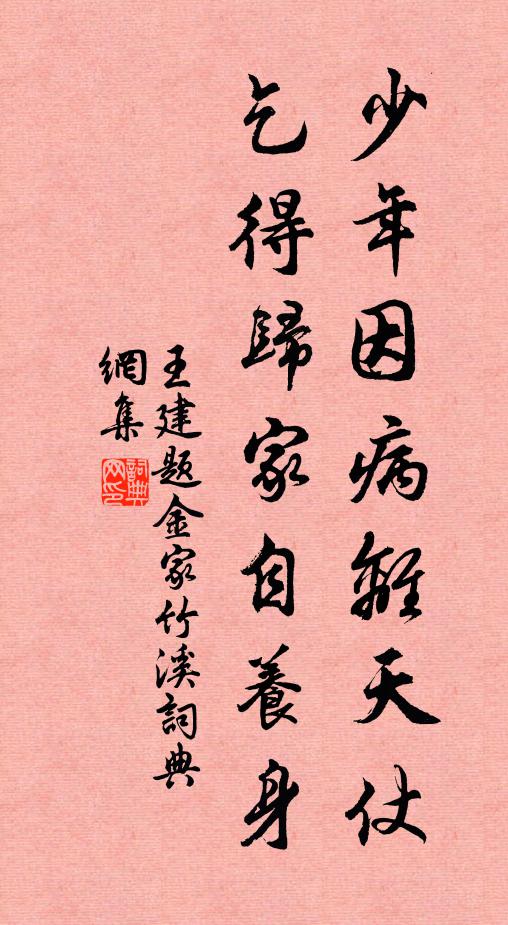 少年因病離天仗
乞得歸家自養身
王建題金家竹溪詞典
網集
詞典網印